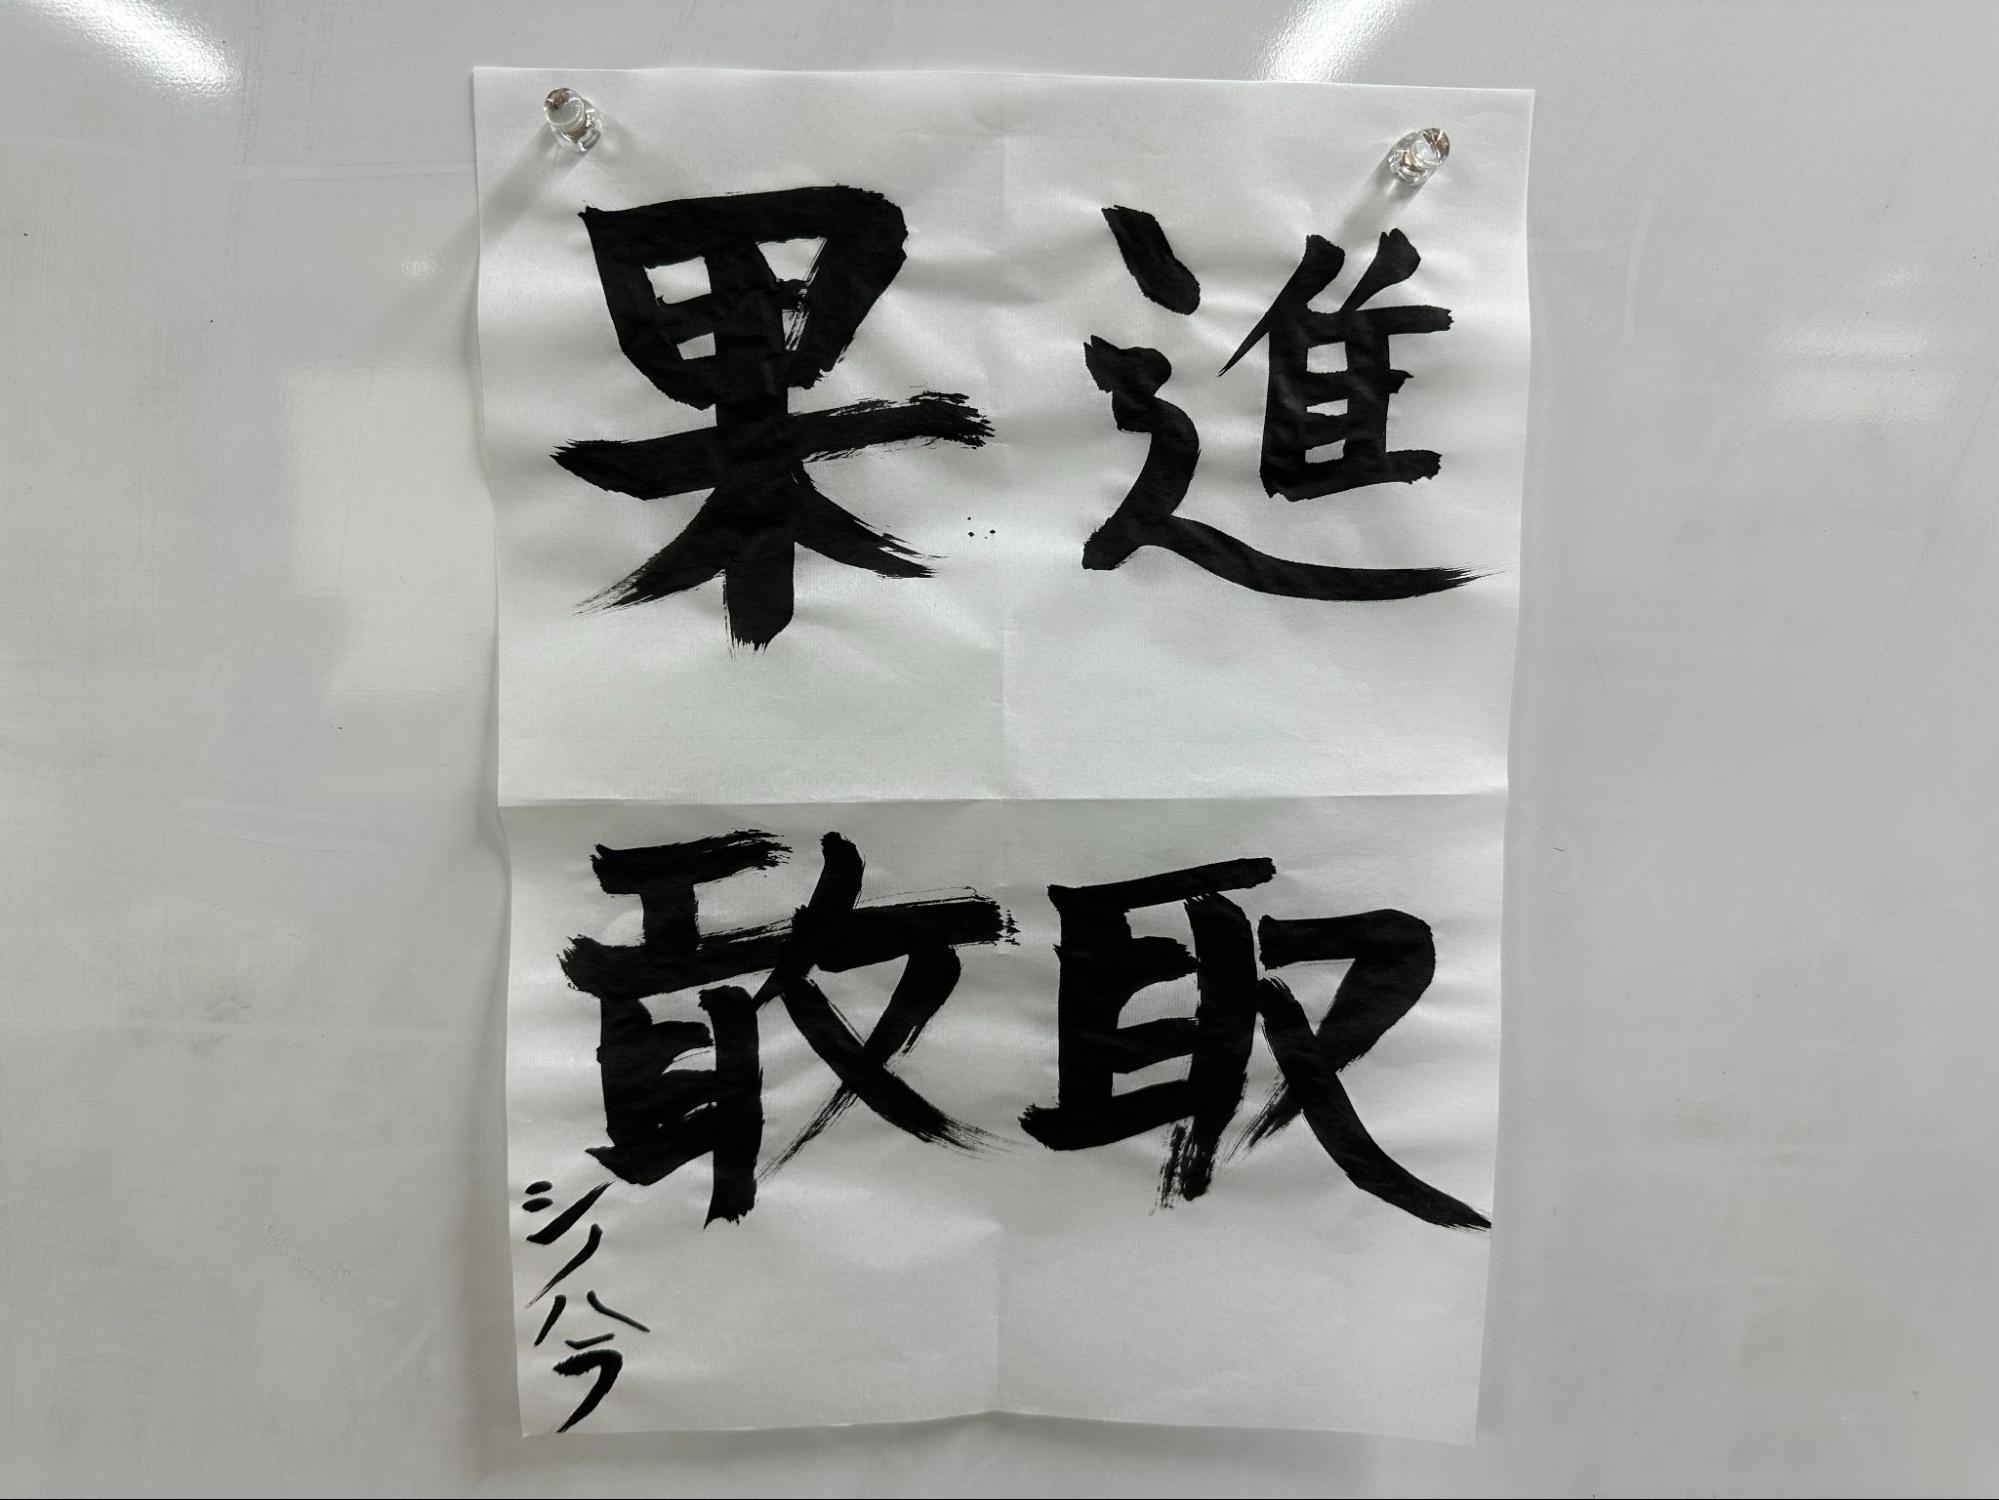 進取
果敢
シノハラ